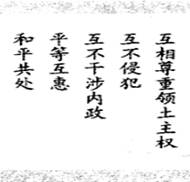 互相尊重领土主权
互不侵犯
互不干涉内政
平等互惠
和平共处